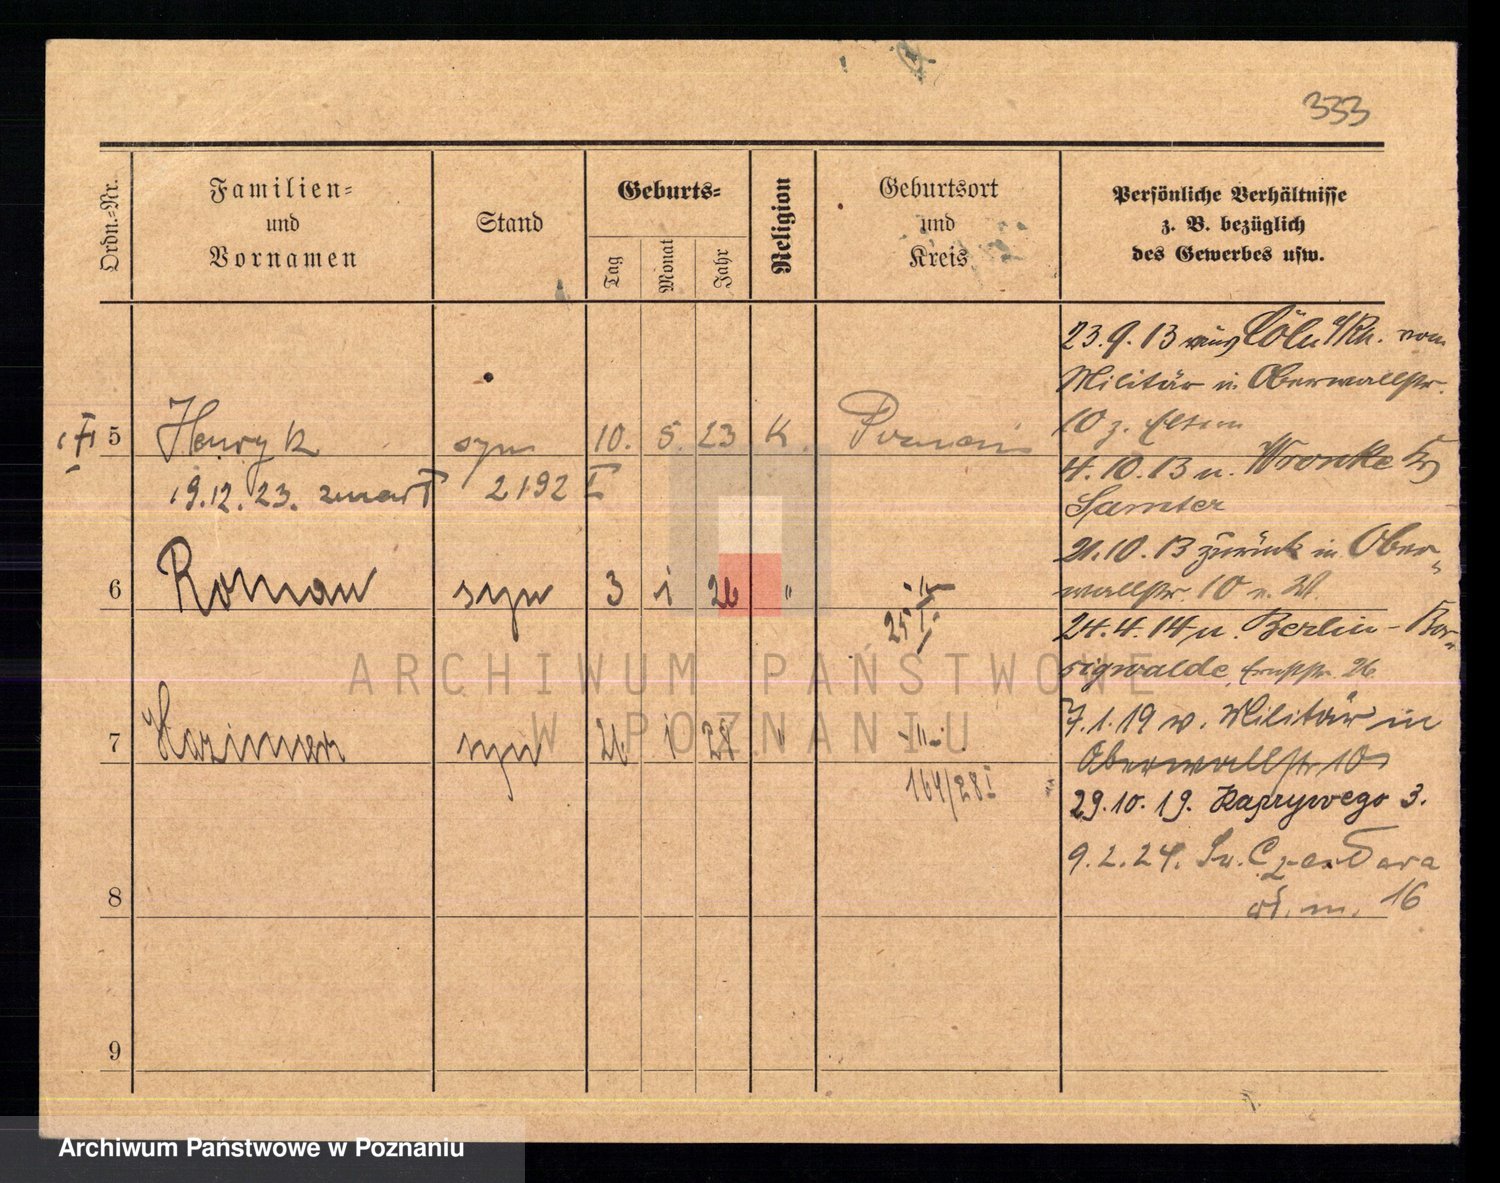 333
Ordn.=Nr.
Familien=
und
Vornamen
Stand
Geburts=
Tag
Monat
Jahr
Religion
Geburtsort
und
Kreis
Persönliche Verhältnisse
z. B. bezüglich
des Gewerbes usw.
23.9.13 aus Cöln a/Rh. vom
Militär in Oberwallstr.
10 z. Eltern
4.10.13 n. Wronke Kr
Samter
21.10.13 zurück in Ober-
wallstr. 10 n. W.
24.4.14 n. Berlin - Bor-
sigwalde, 26
7.1.19 v. Militär in
Oberwallstr 10
29.10.19. Kaprywego 3.
9.2.24. Św. Czesława
16
5 Henryk syn 10. 5. 23 K. Poznań
19.12.23. zmarł 2192 I
6 Roman syn 3 1 26 " -"-
25 I
7 Kazimierz syn 21. 1 28 " -"-
164/28 I
8
9
ARCHIWUM PAŃSTWOWE
W POZNANIU
Archiwum Państwowe w Poznaniu